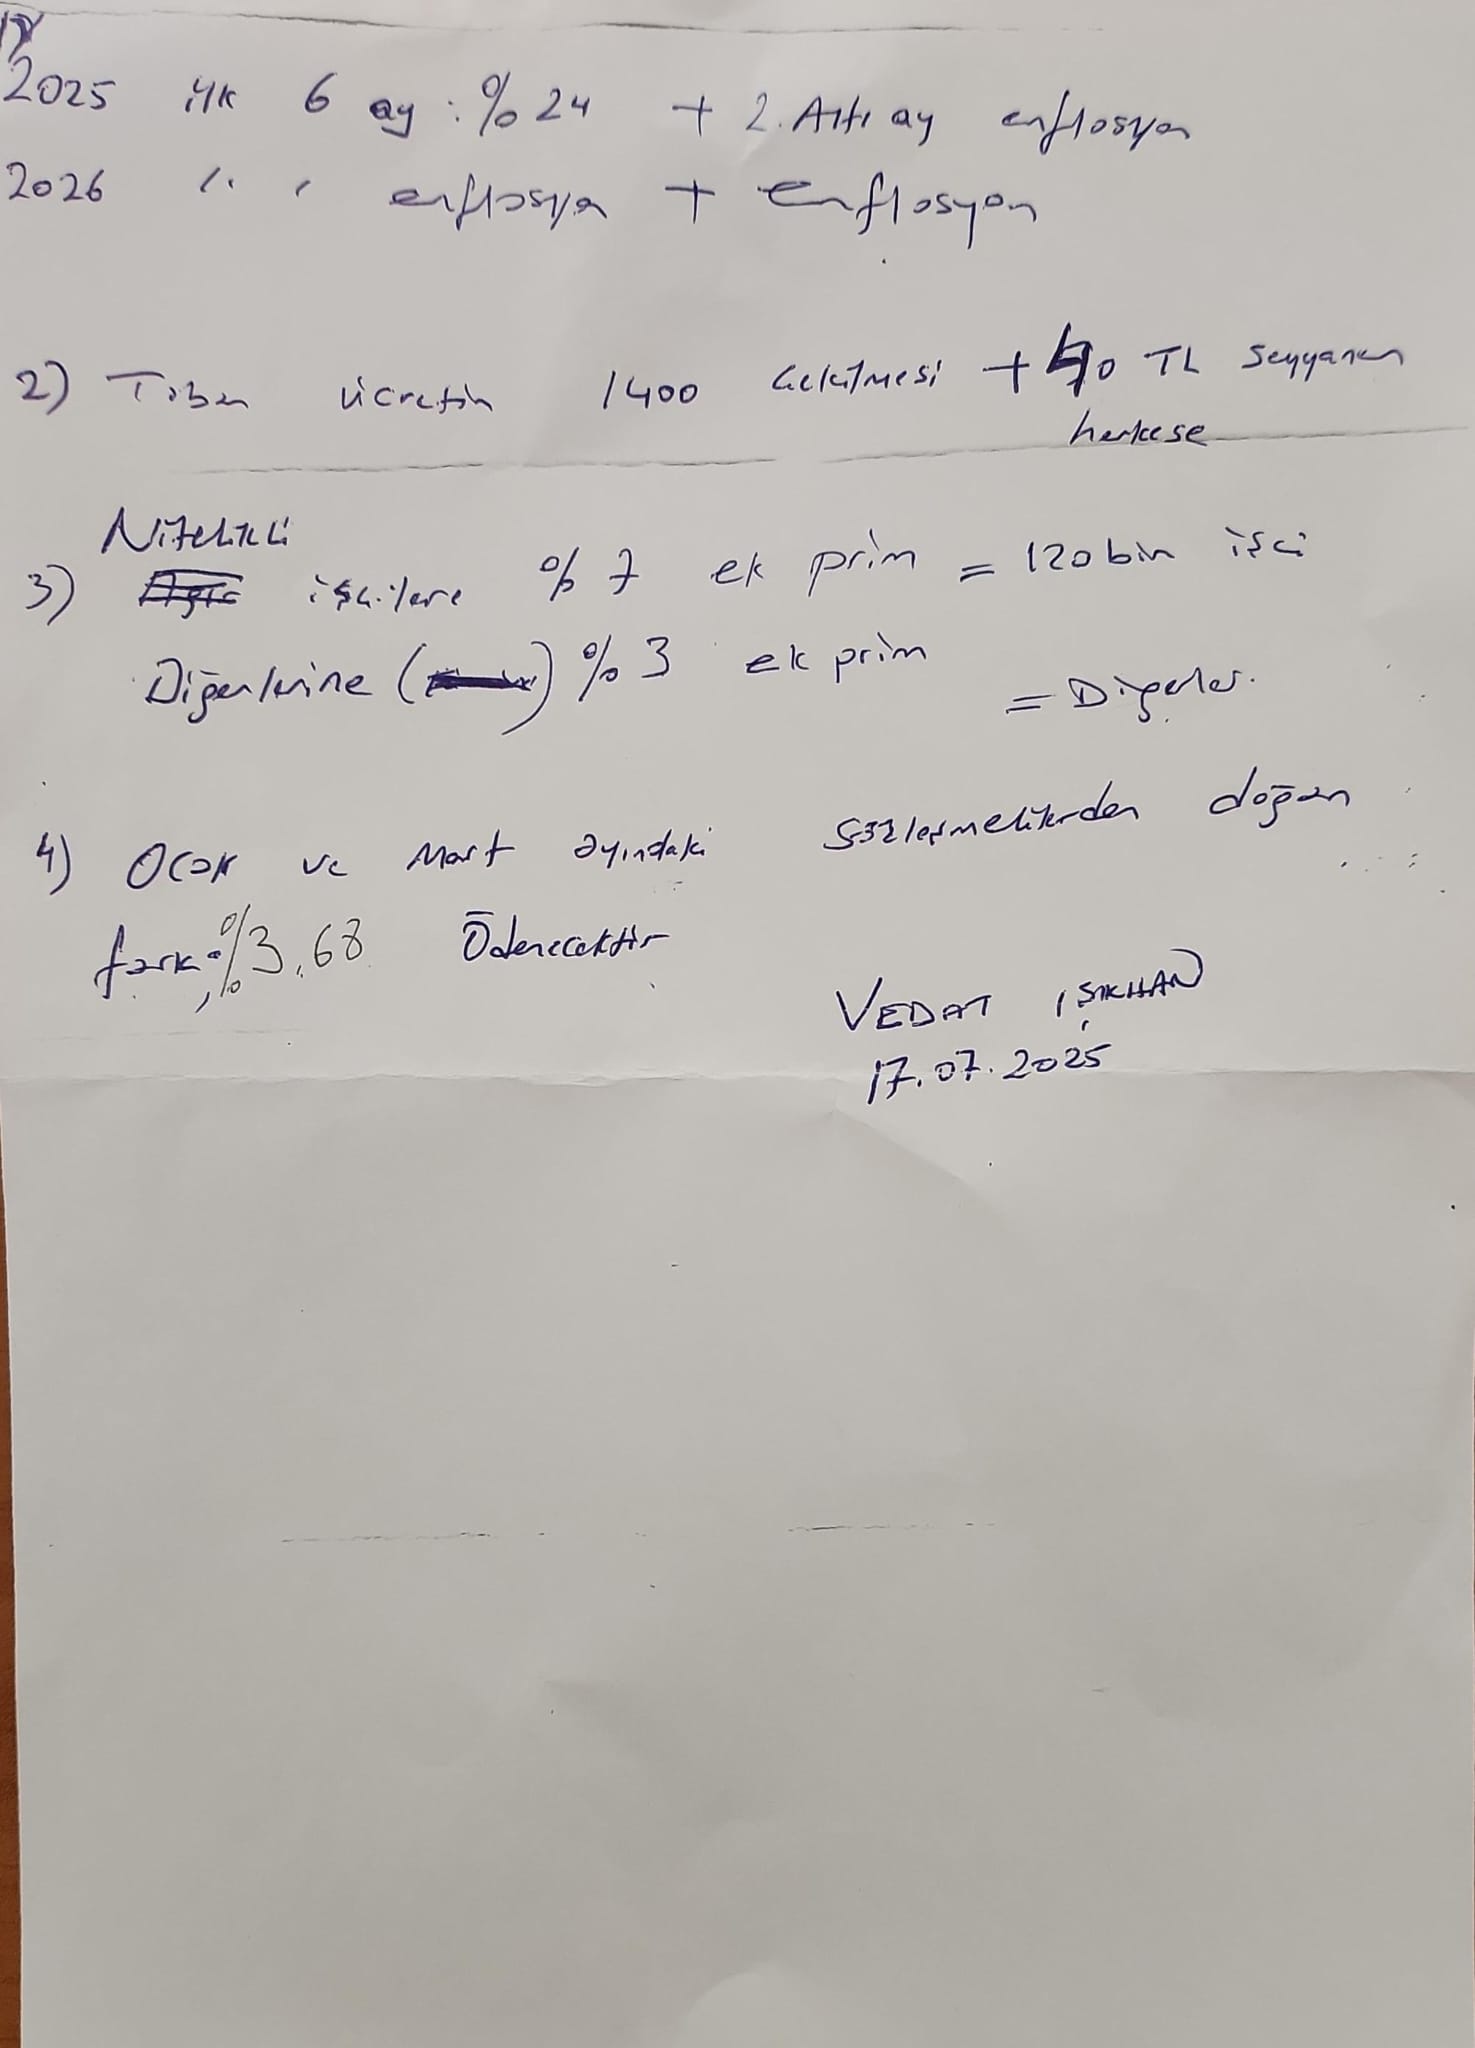 1)
2025 ilk 6 ay : % 24 + 2. Altı ay enflasyon
2026 " " enflasyon + enflasyon
2) Taban ücretin 1400 çekilmesi + 40 TL seyyanen
herkese
Nitelikli
3) işçilere % 7 ek prim = 120 bin işçi
Diğerlerine ( ) % 3 ek prim
= Diğerler.
4) Ocak ve Mart ayındaki sözleşmelilerden doğan
fark %3,68 Ödenecektir
VEDAT IŞIKHAN
17.07.2025